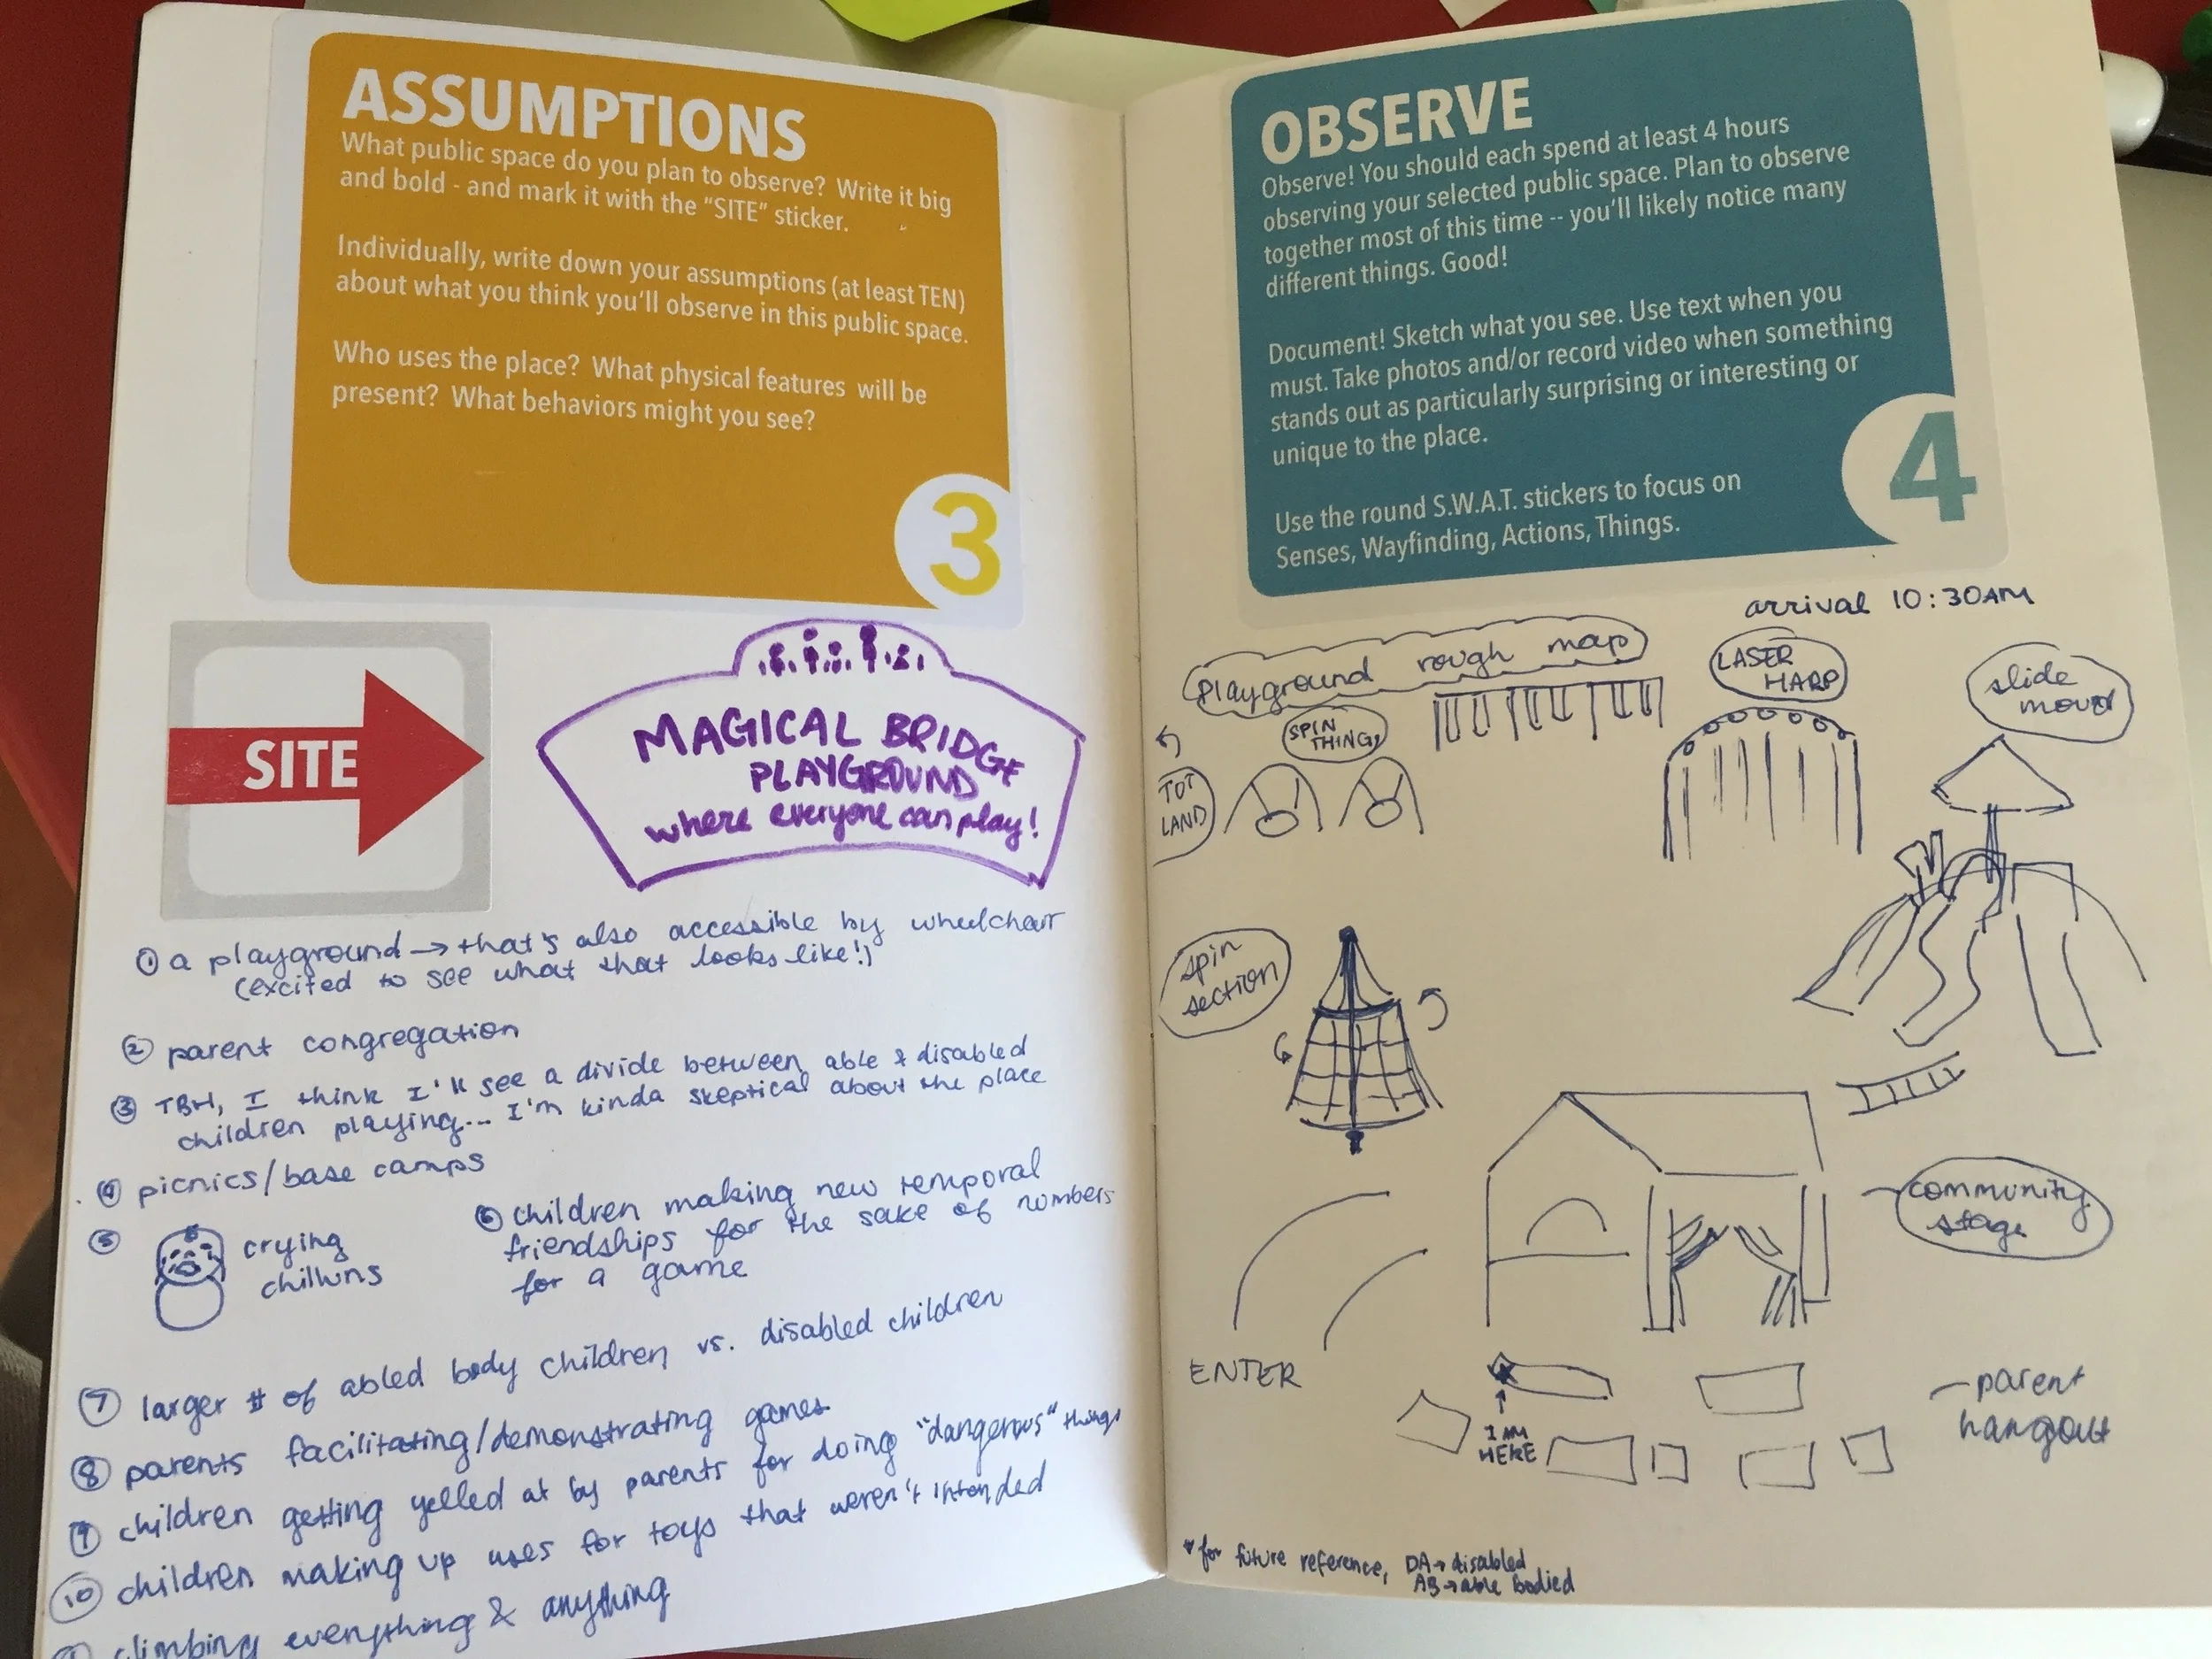 ASSUMPTIONS
What public space do you plan to observe? Write it big
and bold - and mark it with the "SITE" sticker.
Individually, write down your assumptions (at least TEN)
about what you think you'll observe in this public space.
Who uses the place? What physical features will be
present? What behaviors might you see?
3
SITE
MAGICAL BRIDGE
PLAYGROUND
where everyone can play!
① a playground → that's also accessible by wheelchair
(excited to see what that looks like!)
② parent congregation
③ TBH, I think I'll see a divide between able & disabled
children playing... I'm kinda skeptical about the place
④ picnics/base camps
⑤ crying
chilluns
⑥ children making new temporal
friendships for the sake of numbers
for a game
⑦ larger # of abled body children vs. disabled children
⑧ parents facilitating/demonstrating games
⑨ children getting yelled at by parents for doing "dangerous" things
⑩ children making up uses for toys that weren't intended
climbing everything & anything
OBSERVE
Observe! You should each spend at least 4 hours
observing your selected public space. Plan to observe
together most of this time -- you'll likely notice many
different things. Good!
Document! Sketch what you see. Use text when you
must. Take photos and/or record video when something
stands out as particularly surprising or interesting or
unique to the place.
Use the round S.W.A.T. stickers to focus on
Senses, Wayfinding, Actions, Things.
4
arrival 10:30AM
playground rough map
LASER
HARP
slide
mound
SPIN
THINGS
TOT
LAND
spin
section
community
stage
ENTER
I AM
HERE
parent
hangout
* for future reference, DA → disabled
AB → able bodied